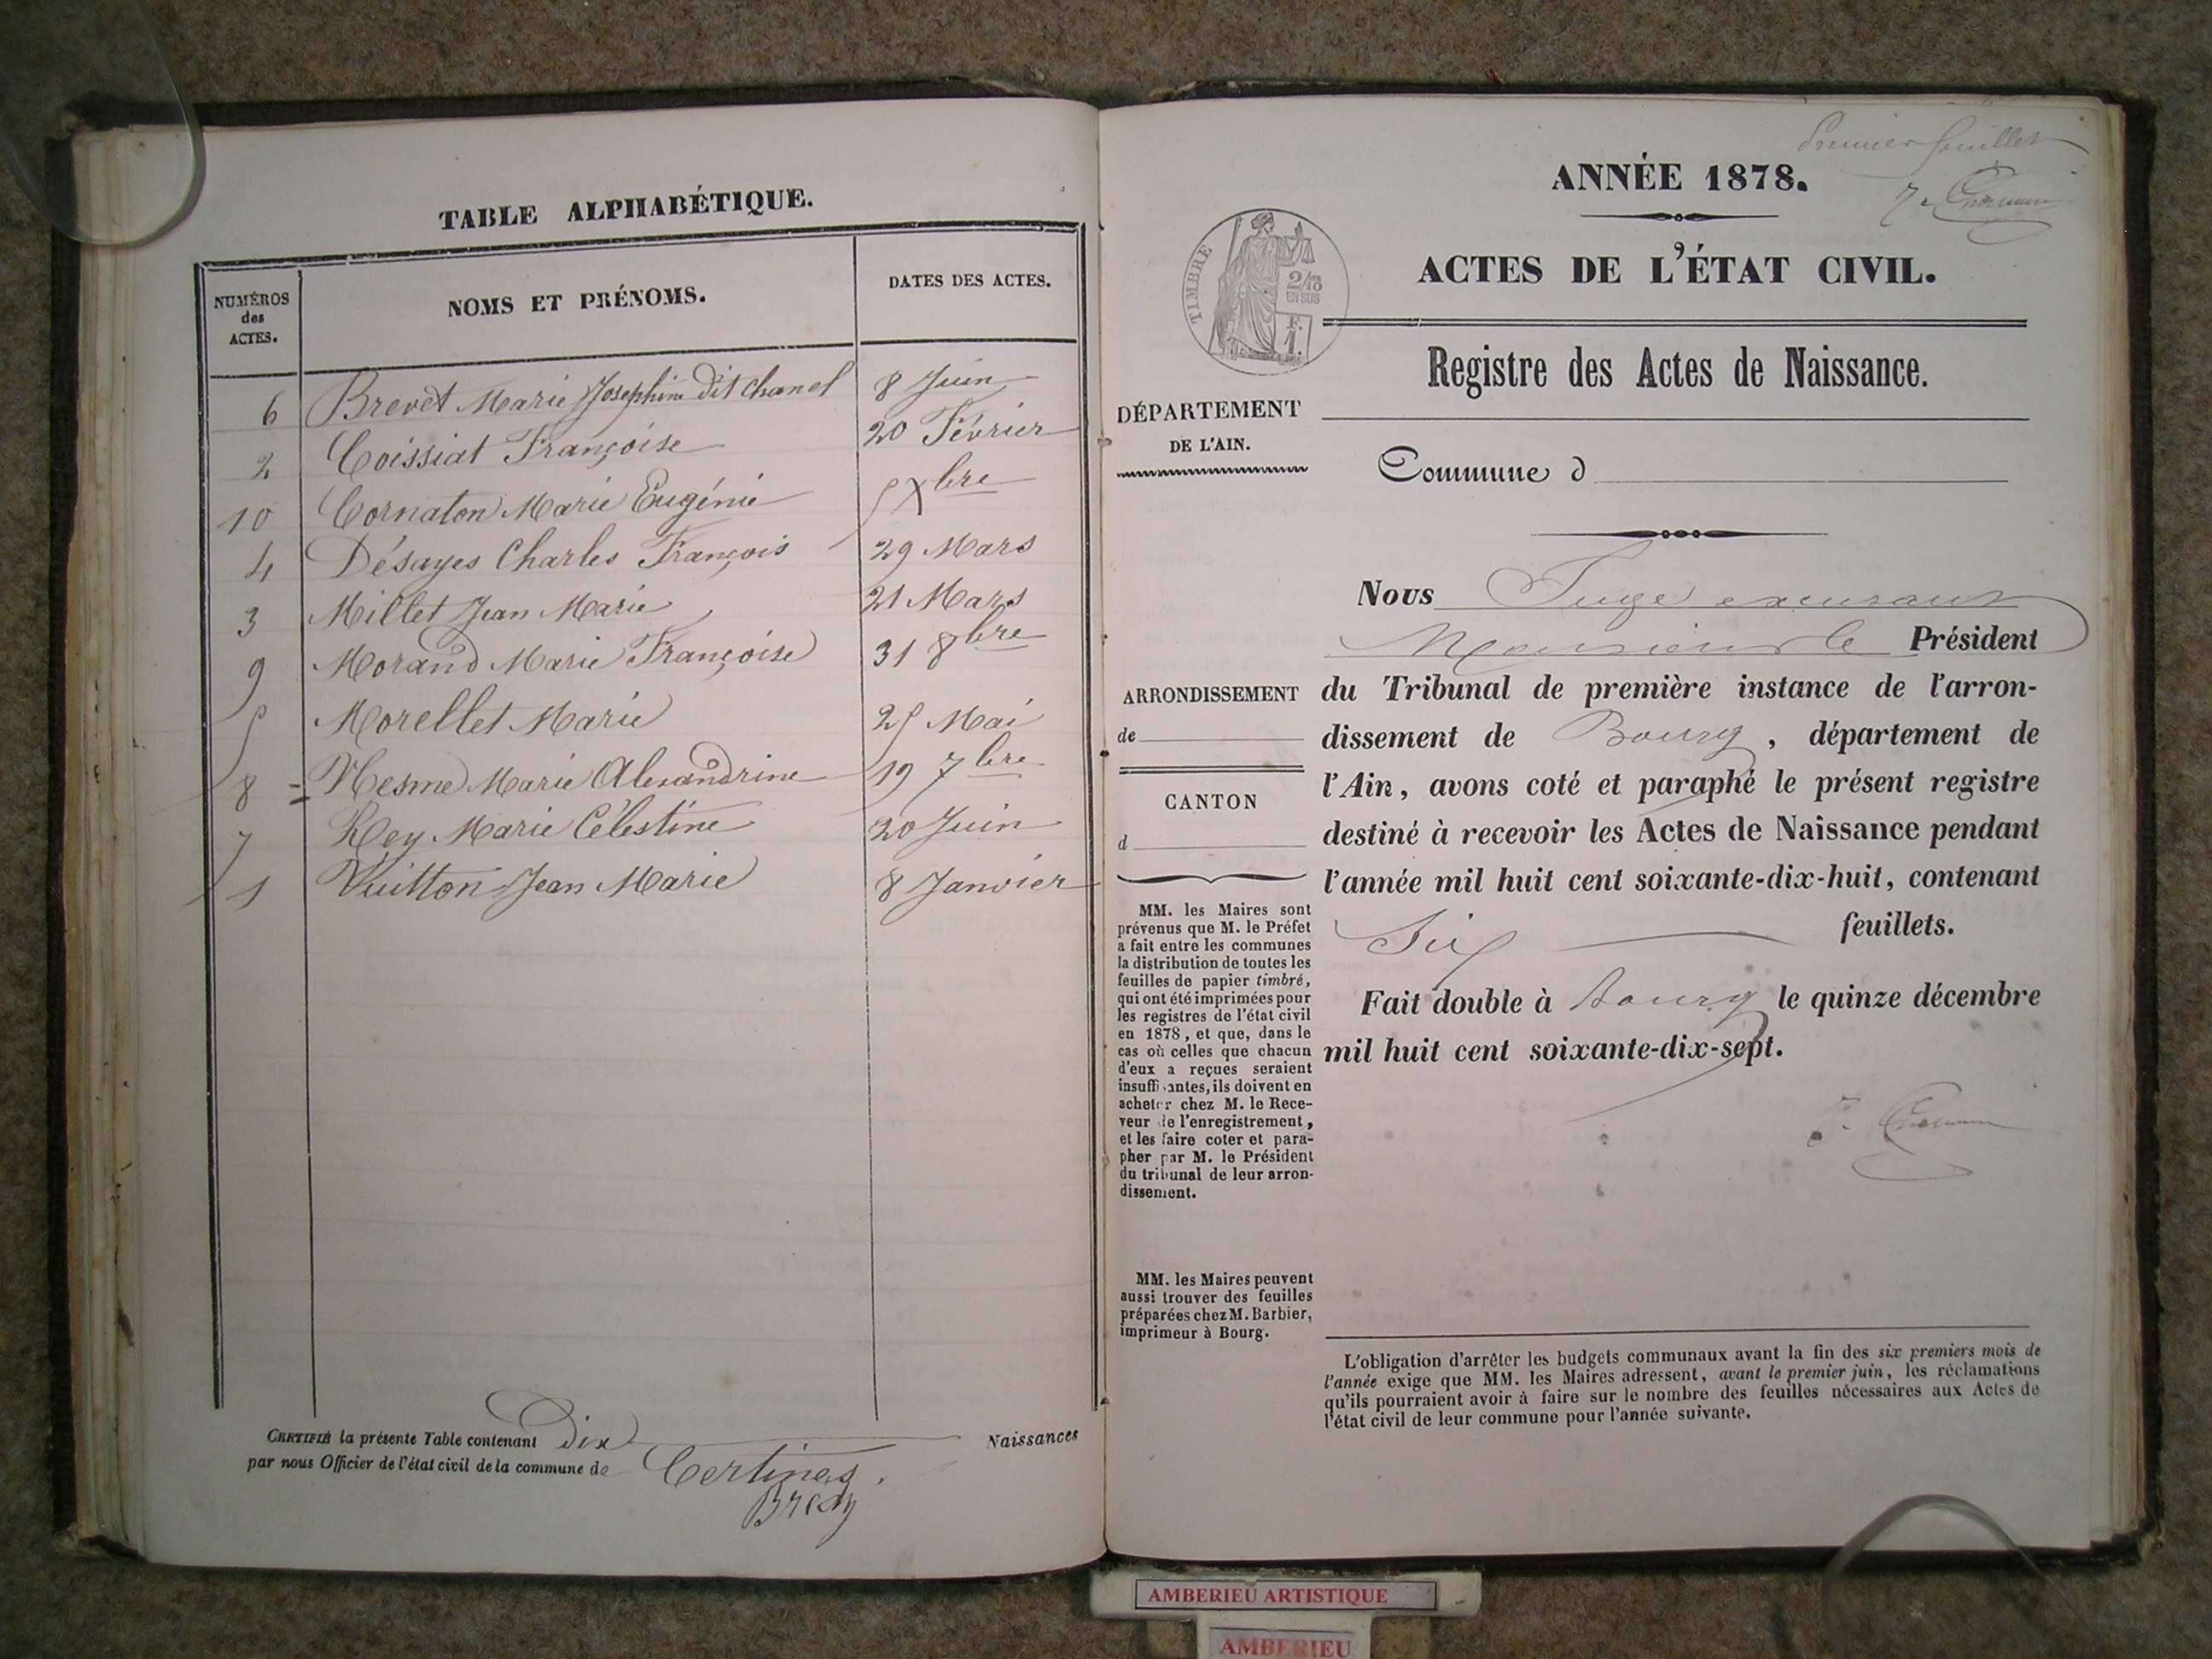 TABLE ALPHABÉTIQUE.
NUMÉROS
des
ACTES.
NOMS ET PRÉNOMS.
DATES DES ACTES.
6 Brevet Marie Josephine dit Chanel 8 Juin
2 Coissiat Françoise 20 Février
10 Cornaton Marie Eugénie 5 Xbre
4 Désayes Charles François 29 Mars
3 Millet Jean Marie 21 Mars
9 Morand Marie Françoise 31 8bre
5 Morellet Marie 25 Mai
8 = Nesme Marie Alexandrine 19 7bre
7 Rey Marie Célestine 20 Juin
1 Vuitton Jean Marie 8 Janvier
CERTIFIÉ la présente Table contenant Dix Naissances
par nous Officier de l'état civil de la commune de Certines.
Premier feuillet
ANNÉE 1878.
TIMBRE
2/10
EN SUS
F.
1.
ACTES DE L'ÉTAT CIVIL.
Registre des Actes de Naissance.
DÉPARTEMENT
DE L'AIN.
Commune d
ARRONDISSEMENT
de
CANTON
d
MM. les Maires sont
prévenus que M. le Préfet
a fait entre les communes
la distribution de toutes les
feuilles de papier timbré,
qui ont été imprimées pour
les registres de l'état civil
en 1878, et que, dans le
cas où celles que chacun
d'eux a reçues seraient
insuffisantes, ils doivent en
acheter chez M. le Rece-
veur de l'enregistrement,
et les faire coter et para-
pher par M. le Président
du tribunal de leur arron-
dissement.
MM. les Maires peuvent
aussi trouver des feuilles
préparées chez M. Barbier,
imprimeur à Bourg.
Nous Juge
Monsieur le Président
du Tribunal de première instance de l'arron-
dissement de Bourg, département de
l'Ain, avons coté et paraphé le présent registre
destiné à recevoir les Actes de Naissance pendant
l'année mil huit cent soixante-dix-huit, contenant
Six feuillets.
Fait double à Bourg le quinze décembre
mil huit cent soixante-dix-sept.
L'obligation d'arrêter les budgets communaux avant la fin des six premiers mois de
l'année exige que MM. les Maires adressent, avant le premier juin, les réclamations
qu'ils pourraient avoir à faire sur le nombre des feuilles nécessaires aux Actes de
l'état civil de leur commune pour l'année suivante.
AMBERIEU ARTISTIQUE
AMBERIEU